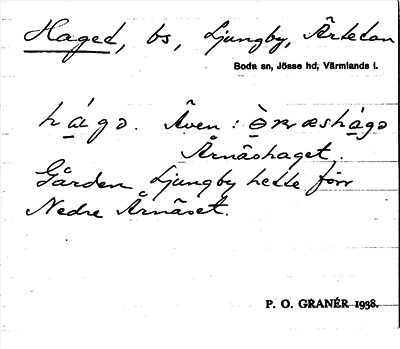 Haget, bs, Ljungby, Ärtetan
Boda sn, Jösse hd, Värmlands l.
hágə. Även: Òrnæshágə
Årnäshaget.
Gården Ljungby hette förr
Nedre Årnäset.
P. O. GRANÉR 1938.